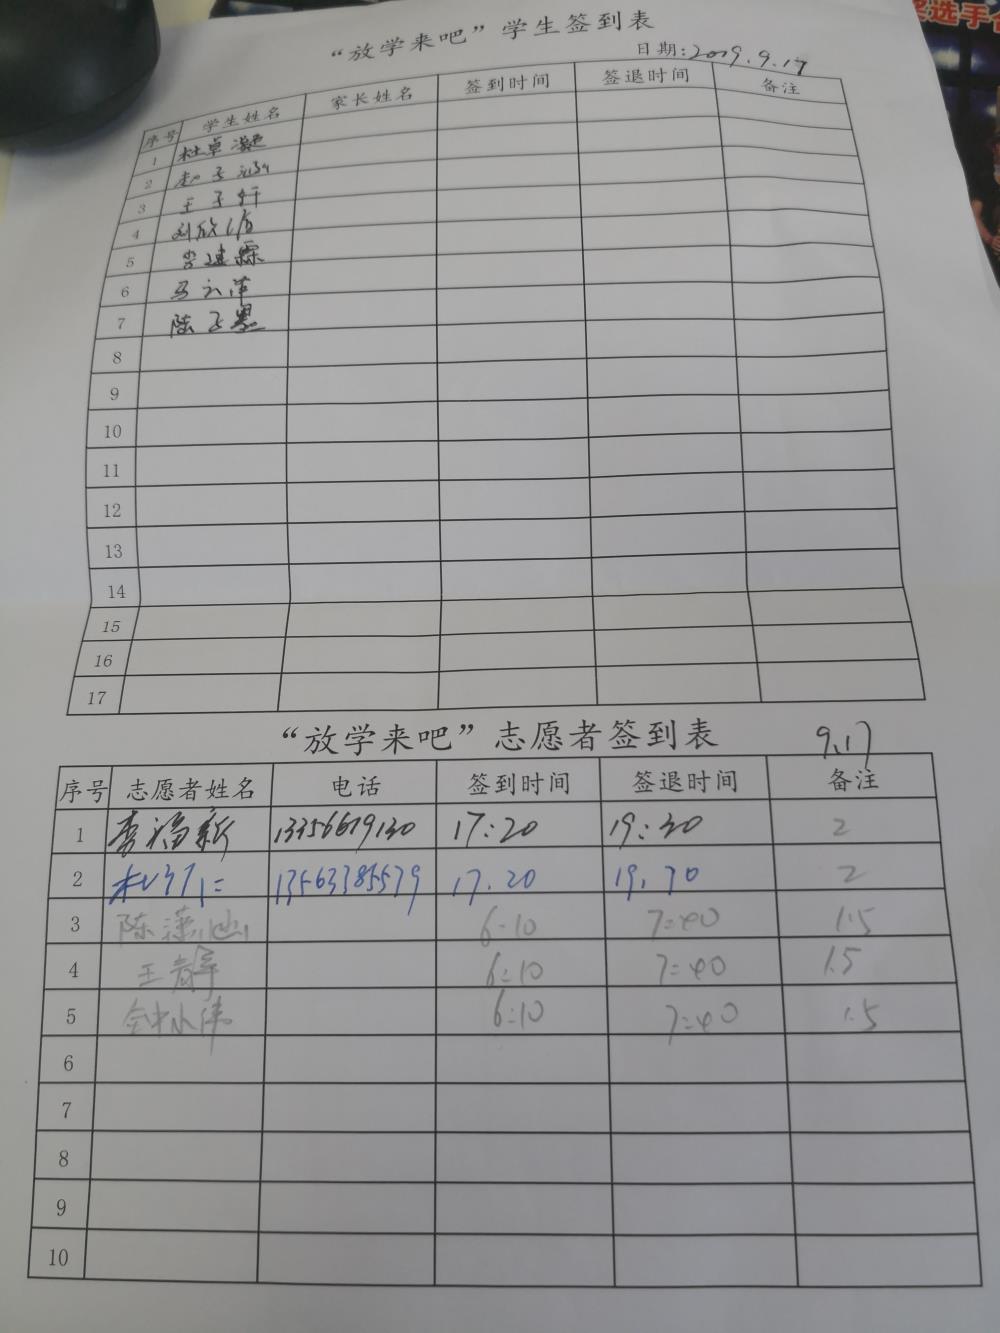 奖选手
“放学来吧”学生签到表
日期:2019.9.17
序号 学生姓名 家长姓名 签到时间 签退时间 备注
1 杜卓凝
2 赵子涵
3 王子轩
4 刘欣怡
5 李建霖
6 马云萍
7 陈子墨
8
9
10
11
12
13
14
15
16
17
“放学来吧”志愿者签到表 9.17
序号 志愿者姓名 电话 签到时间 签退时间 备注
1 李福新 13356619130 17:20 19:20 2
2 13563385579 17.20 19.20 2
3 陈潇 6:10 7:40 1.5
4 王 6:10 7:40 1.5
5 钟小伟 6:10 7:40 1.5
6
7
8
9
10